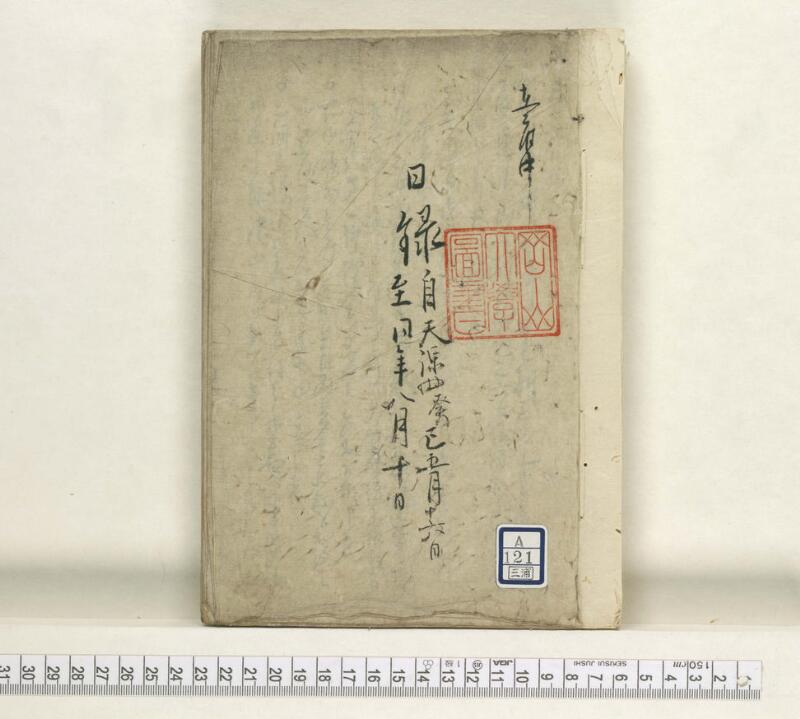 日録
自天保四癸巳五月十六日
至同年八月十日
岡山
大學
圖書
A
121
三浦
31 30 29 28 27 26 25 24 23 22 21 20 19 18 17 16 15 14 13 12 11 10 9 8 7 6 5 4 3 2
SENSUI JUSHI
150cm